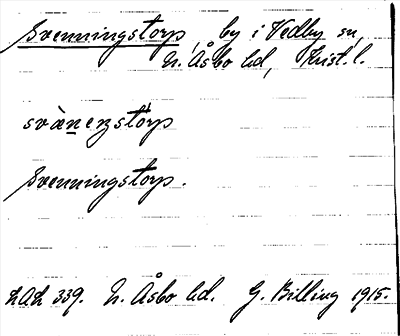 Svenningstorp, by i Vedby sn,
N. Åsbo hd, Krist. l.
svànenstórp
Svenningstorp.
LAL 339. N. Åsbo hd. G. Billing 1915.